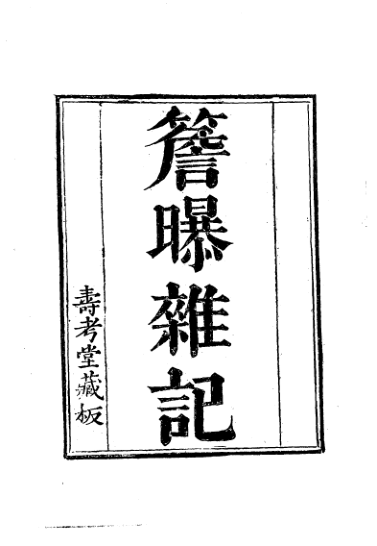 簷曝雜記
壽考堂藏板